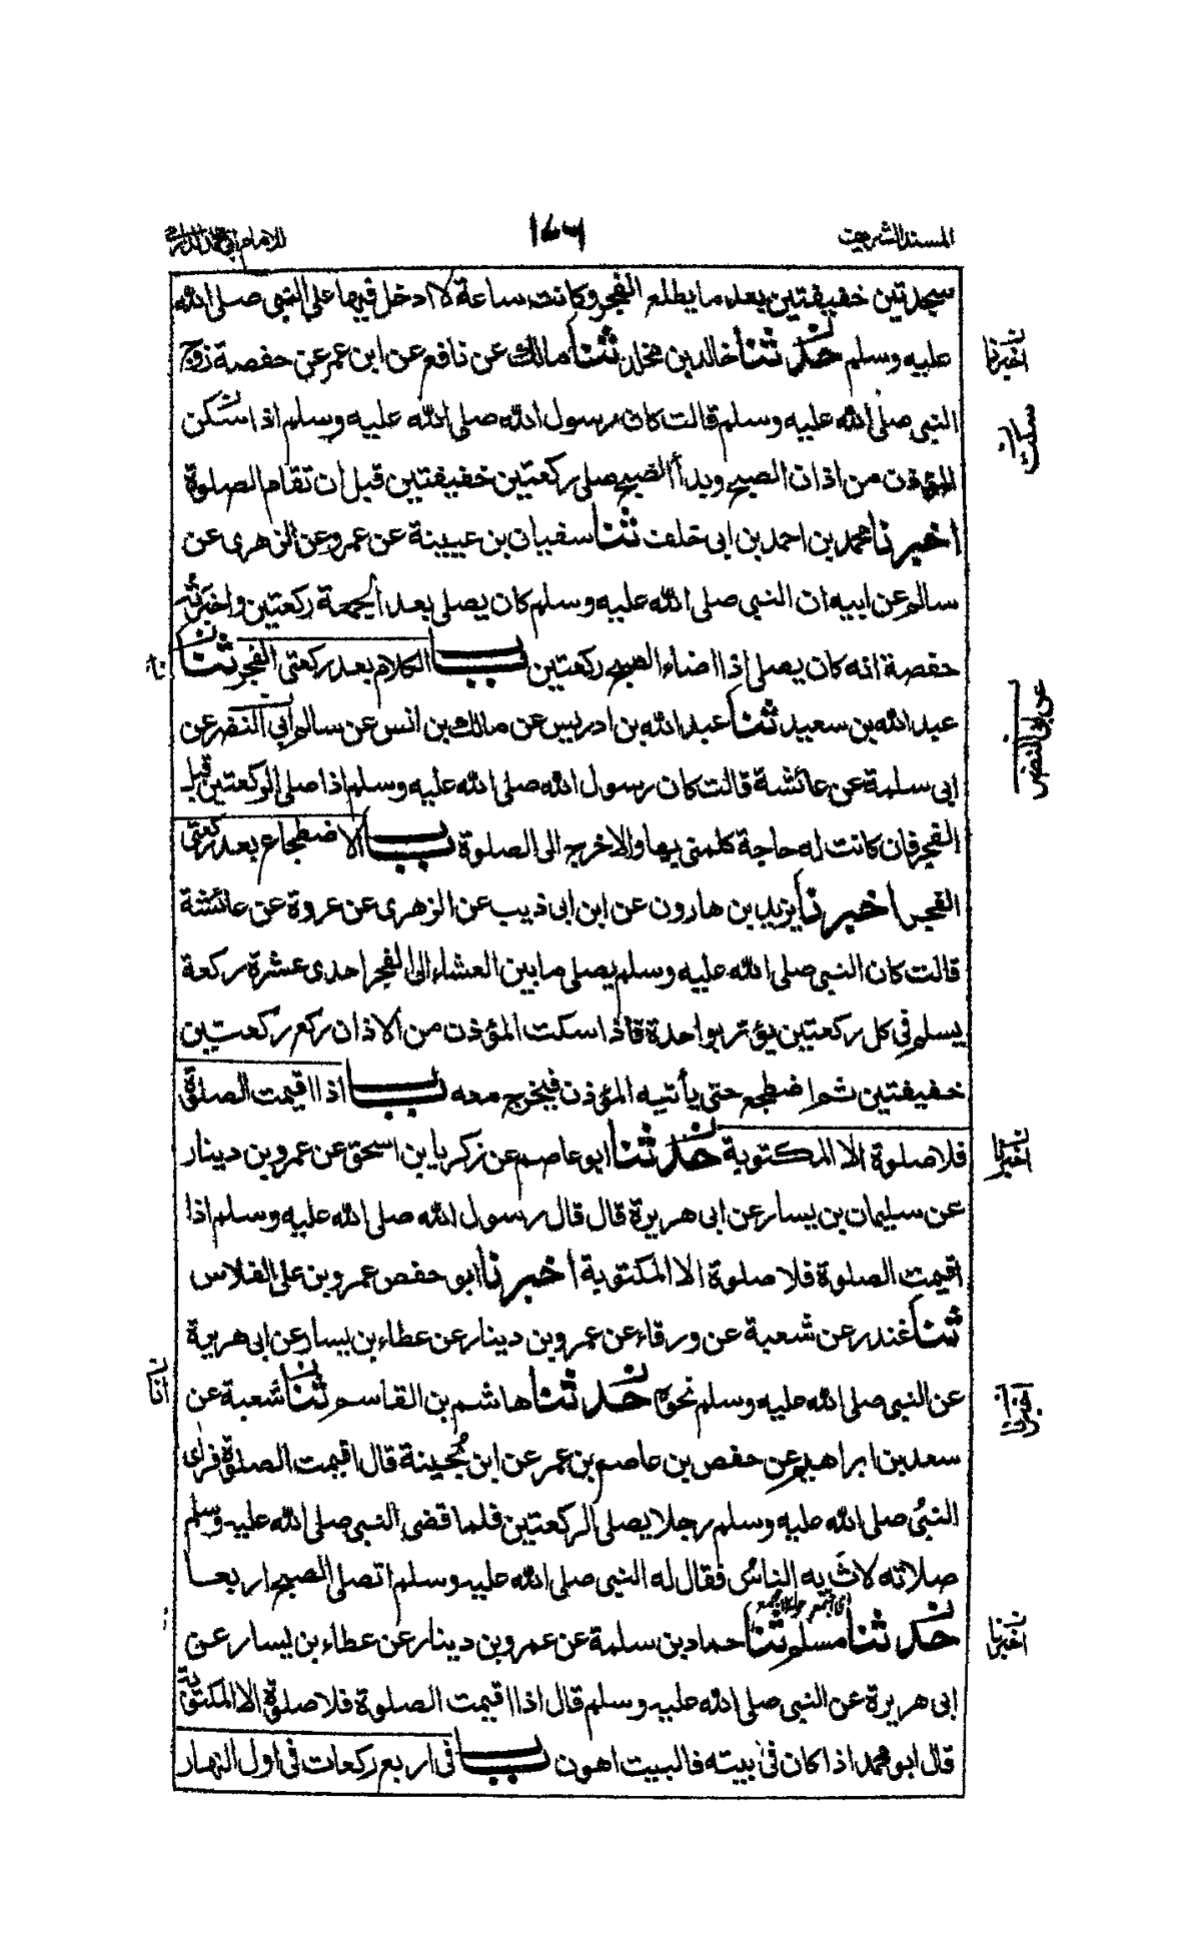 المسند الشريف
١٧٦
للامام ابي محمد الدارمي
سجدتين خفيفتين بعد ما يطلع الفجر وكانت ساعة لا ادخل فيها على النبي صلى الله
عليه وسلم حدثنا خالد بن مخلد ثنا مالك عن نافع عن ابن عمر عن حفصة زوج
النبي صلى الله عليه وسلم قالت كان رسول الله صلى الله عليه وسلم اذا سكن
المؤذن من اذان الصبح وبدأ الصبح صلى ركعتين خفيفتين قبل ان تقام الصلوة
اخبرنا محمد بن احمد بن ابى خلف ثنا سفيان بن عيينة عن عمرو عن الزهرى عن
سالم عن ابيه ان النبي صلى الله عليه وسلم كان يصلى بعد الجمعة ركعتين واخبرتني
حفصة انه كان يصلى اذا اضاء الصبح ركعتين باب الكلام بعد ركعتى الفجر ثنا
عبد الله بن سعيد ثنا عبد الله بن ادريس عن مالك بن انس عن سالم ابى النضر عن
ابى سلمة عن عائشة قالت كان رسول الله صلى الله عليه وسلم اذا صلى الركعتين قبل
الفجر فان كانت له حاجة كلمنى بها والا خرج الى الصلوة باب الاضطجاع بعد ركعتى
الفجر اخبرنا يزيد بن هارون عن ابن ابى ذيب عن الزهرى عن عروة عن عائشة
قالت كان النبى صلى الله عليه وسلم يصلى ما بين العشاء الى الفجر احدى عشرة ركعة
يسلم فى كل ركعتين يؤتر بواحدة فاذا سكت المؤذن من الاذان ركع ركعتين
خفيفتين ثم اضطجع حتى يأتيه المؤذن فيخرج معه باب اذا اقيمت الصلوة
فلا صلوة الا المكتوبة حدثنا ابو عاصم عن زكريا بن اسحق عن عمرو بن دينار
عن سليمان بن يسار عن ابى هريرة قال قال رسول الله صلى الله عليه وسلم اذا
اقيمت الصلوة فلا صلوة الا المكتوبة اخبرنا ابو حفص عمرو بن على الفلاس
ثنا غندر عن شعبة عن ورقاء عن عمرو بن دينار عن عطاء بن يسار عن ابى هريرة
عن النبى صلى الله عليه وسلم نحوه حدثنا هاشم بن القاسم ثنا شعبة عن
سعد بن ابراهيم عن حفص بن عاصم بن عمر عن ابن بُحينة قال اقيمت الصلوة فراى
النبى صلى الله عليه وسلم رجلا يصلى الركعتين فلما قضى النبى صلى الله عليه وسلم
صلاته لاثَ به الناس فقال له النبى صلى الله عليه وسلم اتصلى الصبح اربعا
حدثنا مسلم ثنا حماد بن سلمة عن عمرو بن دينار عن عطاء بن يسار عن
ابى هريرة عن النبى صلى الله عليه وسلم قال اذا اقيمت الصلوة فلا صلوة الا المكتوبة
قال ابو محمد اذا كان فى بيته فالبيت اهون باب فى اربع ركعات فى اول النهار
اخبرنا
سكت
نا
عن ابى النضر
اخبرنا
انا
اخبرنا
اخبرنا